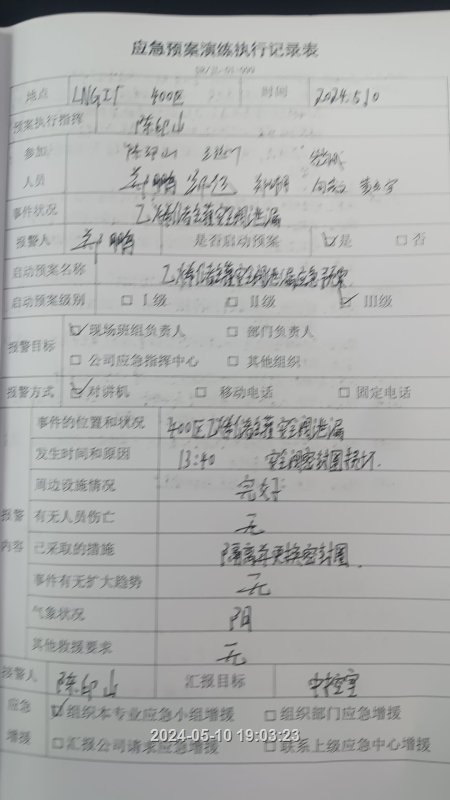 应急预案演练执行记录表
地点 400区 时间 2024.5.10
预案执行指挥 陈印山
参加 陈印山
人员
事件状况 储罐安全阀泄漏
报警人 是否启动预案 ☑是 □否
启动预案名称 储罐安全阀泄漏应急预案
启动预案级别 □Ⅰ级 □Ⅱ级 ☑Ⅲ级
报警目标 ☑现场班组负责人 □部门负责人
□公司应急指挥中心 □其他组织
报警方式 ☑对讲机 □移动电话 □固定电话
事件的位置和状况 400区 储罐安全阀泄漏
发生时间和原因 13:40 安全阀密封圈损坏.
周边设施情况 完好
报警 有无人员伤亡 无
内容 已采取的措施 隔离并更换密封圈.
事件有无扩大趋势 无
气象状况 阴
其他救援要求 无
报警人 陈印山 汇报目标 中控室
应急 ☑组织本专业应急小组增援 □组织部门应急增援
增援 □汇报公司请求应急增援 □联系上级应急中心增援
2024-05-10 19:03:23